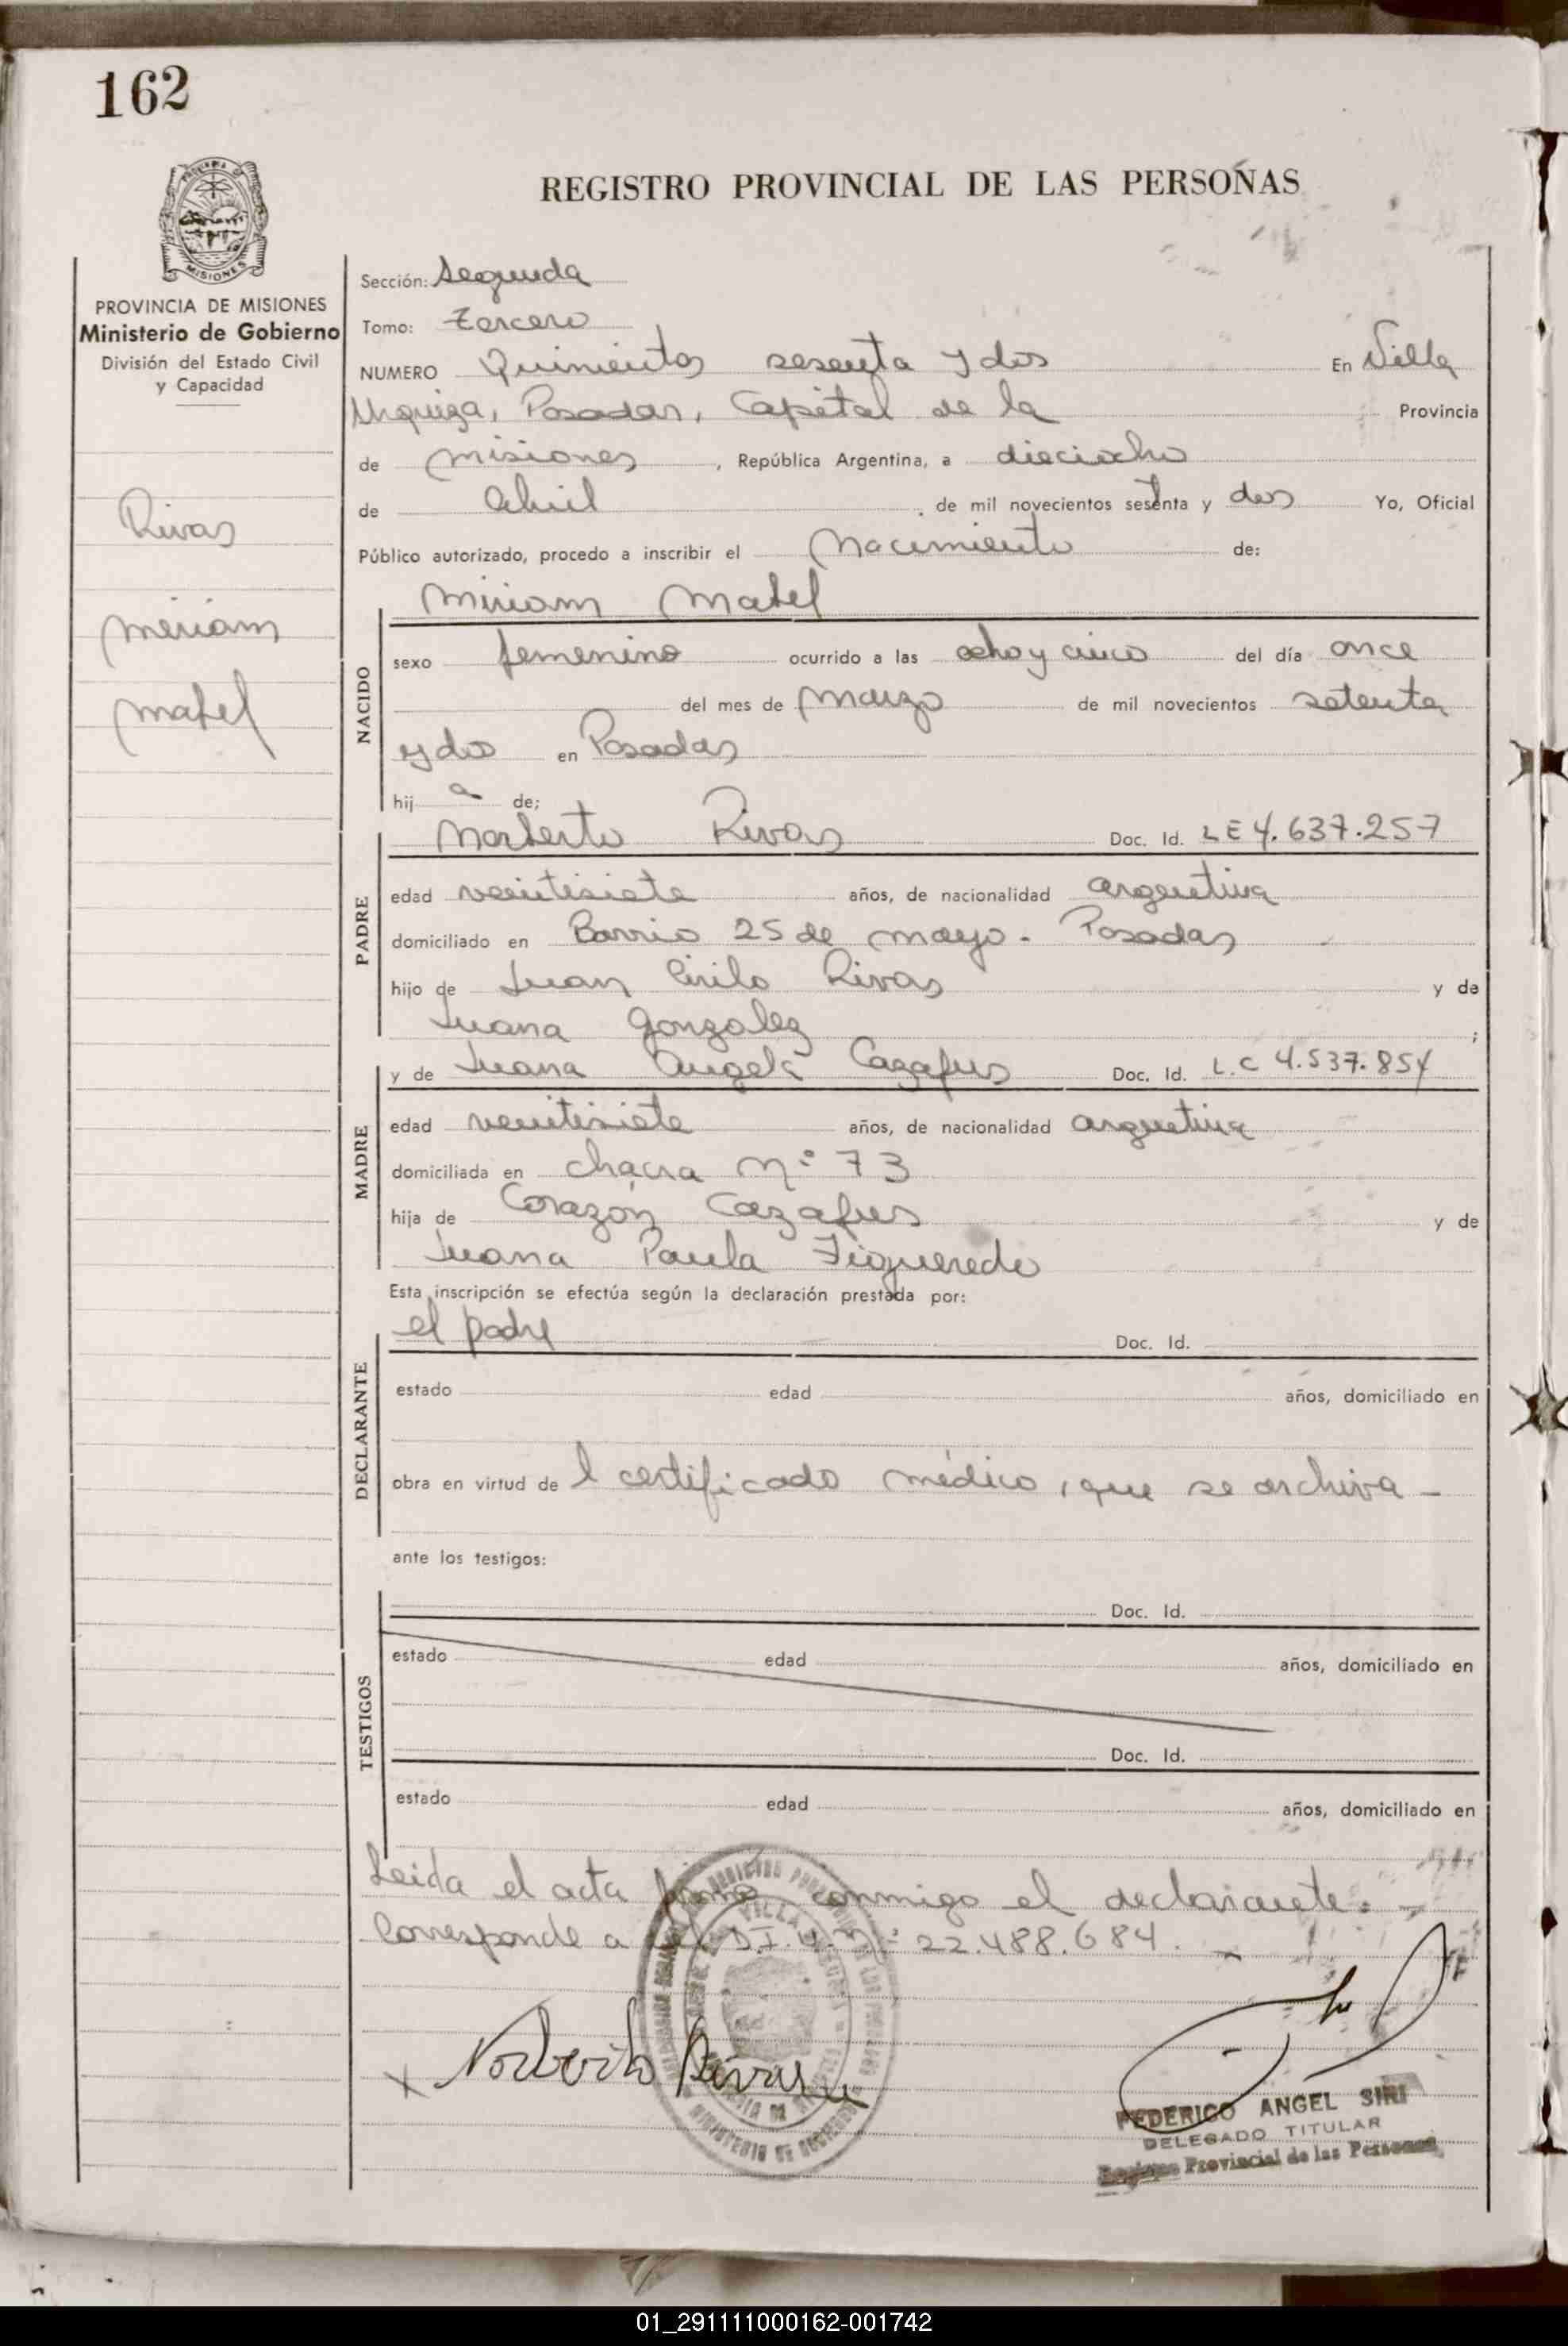 162
REGISTRO PROVINCIAL DE LAS PERSONAS
MISIONES
PROVINCIA DE MISIONES
Ministerio de Gobierno
División del Estado Civil
y Capacidad
Rivas
Miriam
Mabel
Sección: Segunda
Tomo: Tercero
NUMERO Quinientos sesenta y dos En Villa
Urquiza, Posadas, Capital de la Provincia
de Misiones, República Argentina, a dieciocho
de Abril, de mil novecientos setenta y dos Yo, Oficial
Público autorizado, procedo a inscribir el Nacimiento de:
NACIDO
Miriam Mabel
sexo femenino ocurrido a las ocho y cinco del día once
del mes de Marzo de mil novecientos setenta
y dos en Posadas
hij a de;
PADRE
Norberto Rivas Doc. Id. LE 4.637.257
edad veintisiete años, de nacionalidad argentina
domiciliado en Barrio 25 de Mayo. Posadas
hijo de Juan Cirilo Rivas y de
Juana Gonzalez ;
MADRE
y de Juana Angela Cazafus Doc. Id. L.C 4.537.854
edad veintisiete años, de nacionalidad argentina
domiciliada en chacra Nº 73
hija de Corazón Cazafus y de
Juana Paula Figueredo
Esta inscripción se efectúa según la declaración prestada por:
DECLARANTE
el padre Doc. Id.
estado edad años, domiciliado en
obra en virtud de l certificado médico, que se archiva -
ante los testigos:
TESTIGOS
Doc. Id.
estado edad años, domiciliado en
Doc. Id.
estado edad años, domiciliado en
Leida el acta firma conmigo el declarante. -
Corresponde a D.I.U.Nº 22.488.684. -
x Norberto Rivas
FEDERICO ANGEL SIRI
DELEGADO TITULAR
Registro Provincial de las Personas
01_291111000162-001742